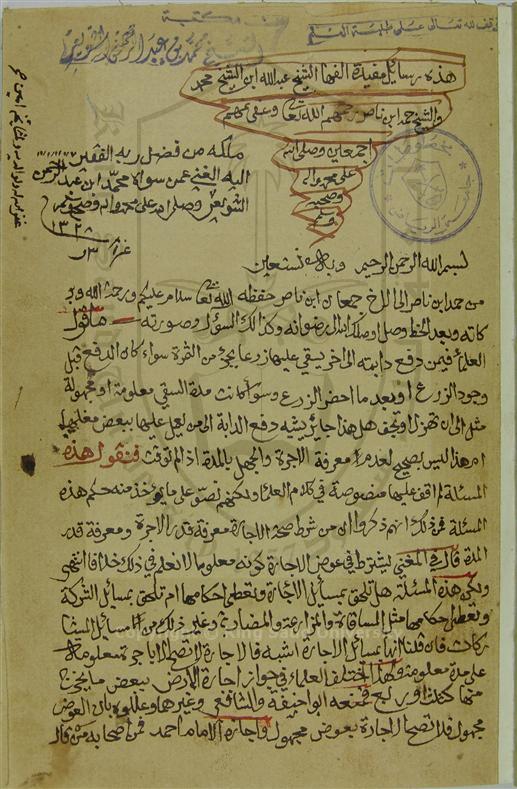 وقف لله تعالى على طلبة العلم
مكتبة
الشيخ محمد بن عبد الرحمن الشويعر
هذه رسايل مفيدة الفها الشيخ عبدالله ابن الشيخ محمد
والشيخ حمد ابن ناصر رحمهم الله تعا وعفى عنهم
اجمعين وصلى الله
على محمد واله
وصحبه
وسلم
ملكه من فضل ربه الفقير
اليه الغني عمن سواه محمد ابن عبد الرحمن
الشويعر وصلى الله على محمد واله وصحبه وسلم
١٣٢٨
بسم الله الرحمن الرحيم وبك نستعين
من حمد ابن ناصر الى الاخ جمعان ابن ناصر حفظه الله تعا سلام عليكم ورحمة الله وبر
كاته وبعد الخط وصل اوصلك الله الى رضوانه وكذالك السؤال وصورته ما قول
العلماء فيمن دفع دابته الى اخر يسقي عليها زرعا بجزء من الثمرة سواء كان الدفع قبل
وجود الزرع او بعد ما اخضر الزرع وسواء كانت مدة السقي معلومة او مجهولة
مثل الى ان تهزل او تعجف هل هذا جائز يشبه دفع الدابة الى من يعمل عليها ببعض مغلها
ام هذا ليس بصحيح لعدم معرفة الاجرة والجهل بالمدة اذا لم توقت فنقول هذه
المسئلة لم اقف عليها منصوصة في كلام العلماء ولكنهم نصوا على ما يوخذ منه حكم هذه
المسئلة فمن ذلك انهم ذكروا ان من شرط صحة الاجارة معرفة قدر الاجرة ومعرفة قدر
المدة قال في المغني يشترط في عوض الاجارة كونه معلوما لا نعلم في ذلك خلافا انتهى
ولكن هذه المسئلة هل تلحق بمسايل الاجارة وتعطى احكامها ام تلحق بمسايل الشركة
وتعطى احكامها مثل المساقاة والمزارعة والمضاربة وغير ذلك من المسايل المشا
ركات فان قلنا انها بمسايل الاجارة اشبه فالاجارة لا تصح الا باجرة معلومة
على مدة معلومة ولهذا اختلف العلماء في جواز اجارة الارض ببعض ما يخرج
منها كثلث او ربع فمنعه ابو حنيفة والشافعي وغيرها وعللوه بان العوض
مجهول فلا تصح الاجارة بعوض مجهول واجازه الامام احمد فمن اصحابه من قال